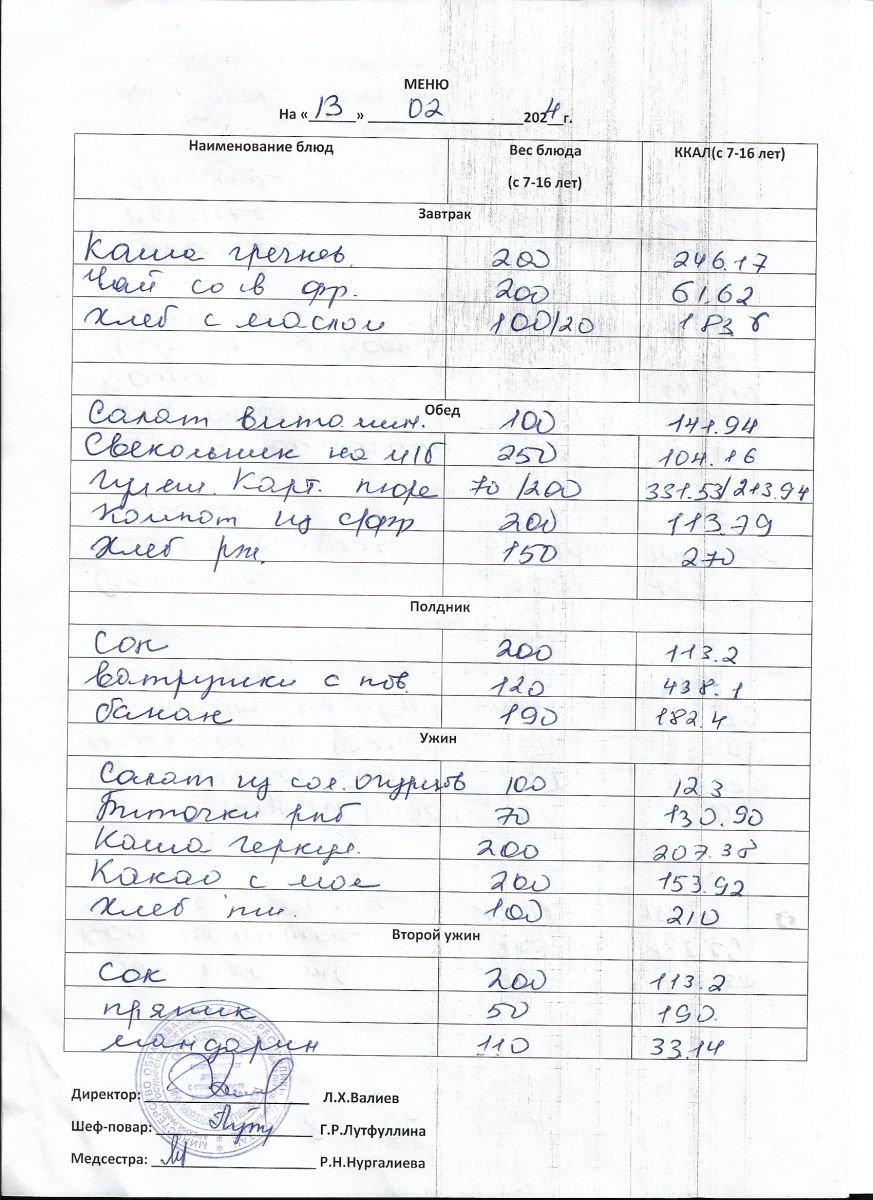 МЕНЮ
На «13» 02 2024г.
Наименование блюд Вес блюда (с 7-16 лет) ККАЛ(с 7-16 лет)
Завтрак
Каша гречнев. 200 246.17
Чай со в фр. 200 61.62
Хлеб с маслом 100/20 183.6
Обед
Салат витамин. 100 141.94
Свекольник на м/б 250 104.16
Гуляш. Карт. пюре 70/200 331.53/213.94
Компот из с/фр 200 113.79
Хлеб рж. 150 270
Полдник
Сок 200 113.2
Ватрушки с пов. 120 438.1
банан 190 182.4
Ужин
Салат из сол. огурцов 100 123
Биточки рыб 70 130.90
Каша геркул. 200 207.38
Какао с мол 200 153.92
Хлеб пш. 100 210
Второй ужин
Сок 200 113.2
пряник 50 190.
мандарин 110 33.14
Директор: Л.Х.Валиев
Шеф-повар: Г.Р.Лутфуллина
Медсестра: Р.Н.Нургалиева